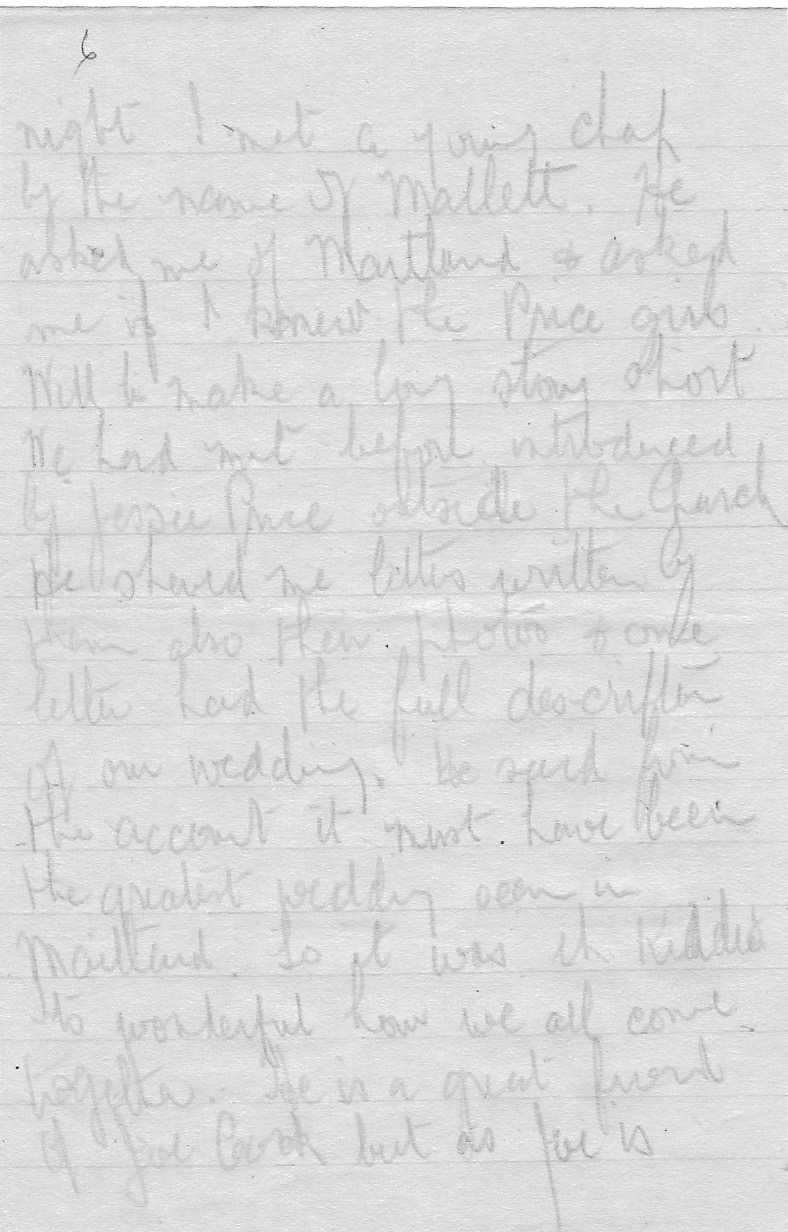 6
night I met a young chap
by the name of Mallett. He
asked me of Maitland & asked
me if I knew the Price girls.
Well to make a long story short
We had met before introduced
by Jessie Price outside the Church
He showed me letters written by
them also their photos & one
letter had the full description
of our wedding. He said from
the account it must have been
the greatest wedding seen in
Maitland. So it was eh Kiddie
Its wonderful how we all come
together. He is a great friend
of Joe Cook but as Joe is